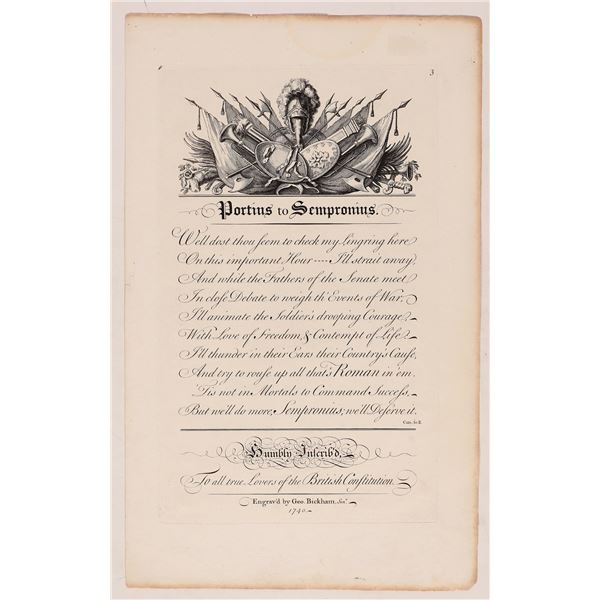 3
Portius to Sempronius.
Well dost thou seem to check my Lingring here
On this important Hour ---- I'll strait away;
And while the Fathers of the Senate meet
In close Debate to weigh th' Events of War,
I'll animate the Soldier's drooping Courage
With Love of Freedom, & Contempt of Life.
I'll thunder in their Ears their Country's Cause,
And try to rouse up all that's Roman in 'em.
'Tis not in Mortals to Command Success,
But we'll do more, Sempronius; we'll Deserve it.
Humbly Inscrib'd,
To all true Lovers of the British Constitution.
Engrav'd by Geo. Bickham, Senr.
1740.